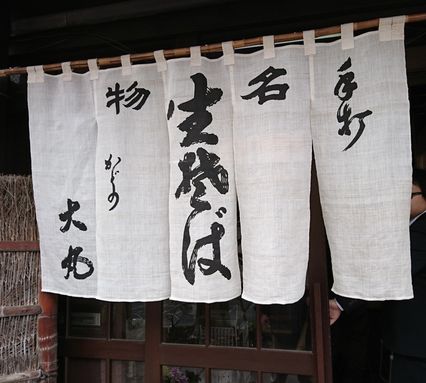 手打
名物
生そば
かどの
大丸